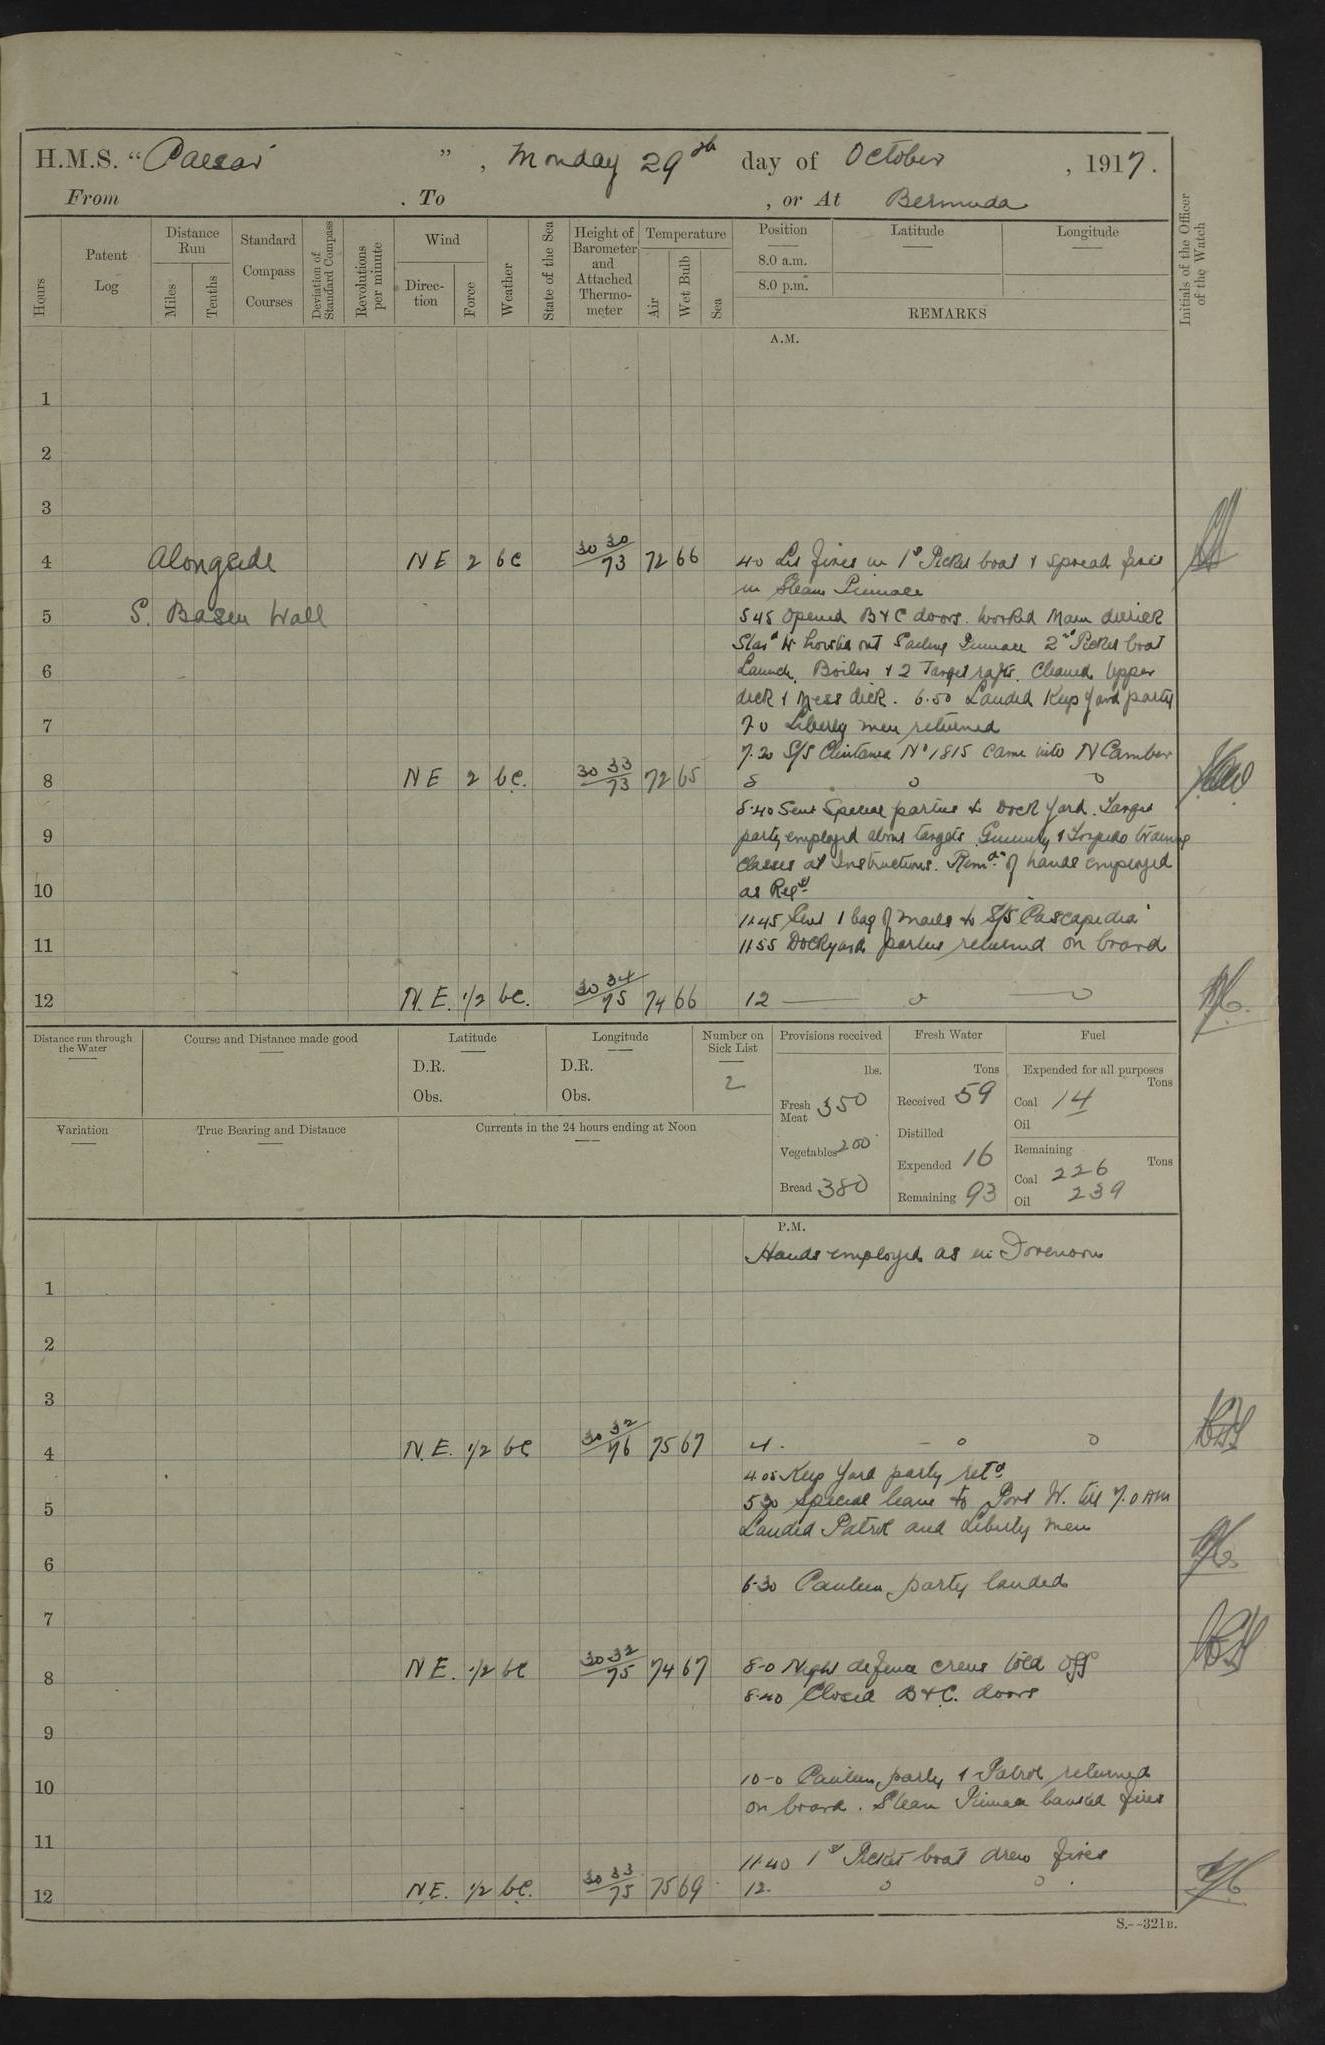 H.M.S. "Caesar", Monday 29th day of October, 1917.
From . To , or At Bermuda
Hours
Patent Log
Distance Run
Miles
Tenths
Standard Compass Courses
Deviation of Standard Compass
Revolutions per minute
Wind
Direction
Force
Weather
State of the Sea
Height of Barometer and Attached Thermometer
Temperature
Air
Wet Bulb
Sea
Position
8.0 a.m.
8.0 p.m.
Latitude
Longitude
REMARKS
Initials of the Officer of the Watch
A.M.
1
2
3
4 Alongside NE 2 bc 30 30/73 72 66 4.0 Lit fires in 1st Picket boat & spread fires
in Steam Pinnace
5 S. Basin Wall 5 45 Opened B & C doors. Worked Main derrick
hoisted out Sailing Pinnace 2nd Picket boat
6 Launch, Boiler & 2 Target rafts. Cleaned Upper
deck & Mess deck. 6.50 Landed Keep Yard party
7 7.0 Liberty men returned
7.20 S/S No 1815 came into N Camber
8 NE 2 bc. 30 33/73 72 65 8 o o
8.40 Sent Special parties to Dock Yard. Target
9 party employed about targets. Gunnery & Torpedo training
classes at Instructions. Remdr of hands employed
10 as Reqd
11.45 Sent 1 bag of mails to S/S "Cascapedia"
11 11.55 Dockyard parties returned on board
12 N.E. 1/2 bc. 30 34/75 74 66 12 o o
Distance run through the Water
Course and Distance made good
Latitude
D.R.
Obs.
Longitude
D.R.
Obs.
Number on Sick List
2
Provisions received
lbs.
Fresh Meat 350
Vegetables 200
Bread 380
Fresh Water
Tons
Received 59
Distilled
Expended 16
Remaining 93
Fuel
Expended for all purposes
Tons
Coal 14
Oil
Remaining
Tons
Coal 226
Oil 239
Variation
True Bearing and Distance
Currents in the 24 hours ending at Noon
P.M.
Hands employed as in Forenoon
1
2
3
4 N.E. 1/2 bc 30 32/76 75 67 4. o o
4 05 Keep Yard party retd
5 5 30 Special leave to Port W. till 7.0 AM
Landed Patrol and Liberty men
6
6.30 Canteen party landed
7
8 N.E. 1/2 bc 30.32/75 74 67 8.0 Night defence crews told off
8.40 Closed B & C. doors
9
10 10-0 Canteen party & Patrol returned
on board. Steam Pinnace banked fires
11
11.40 1st Picket boat drew fires
12 N.E. 1/2 bc. 30 33/75 75 69 12. o o
S.--321B.